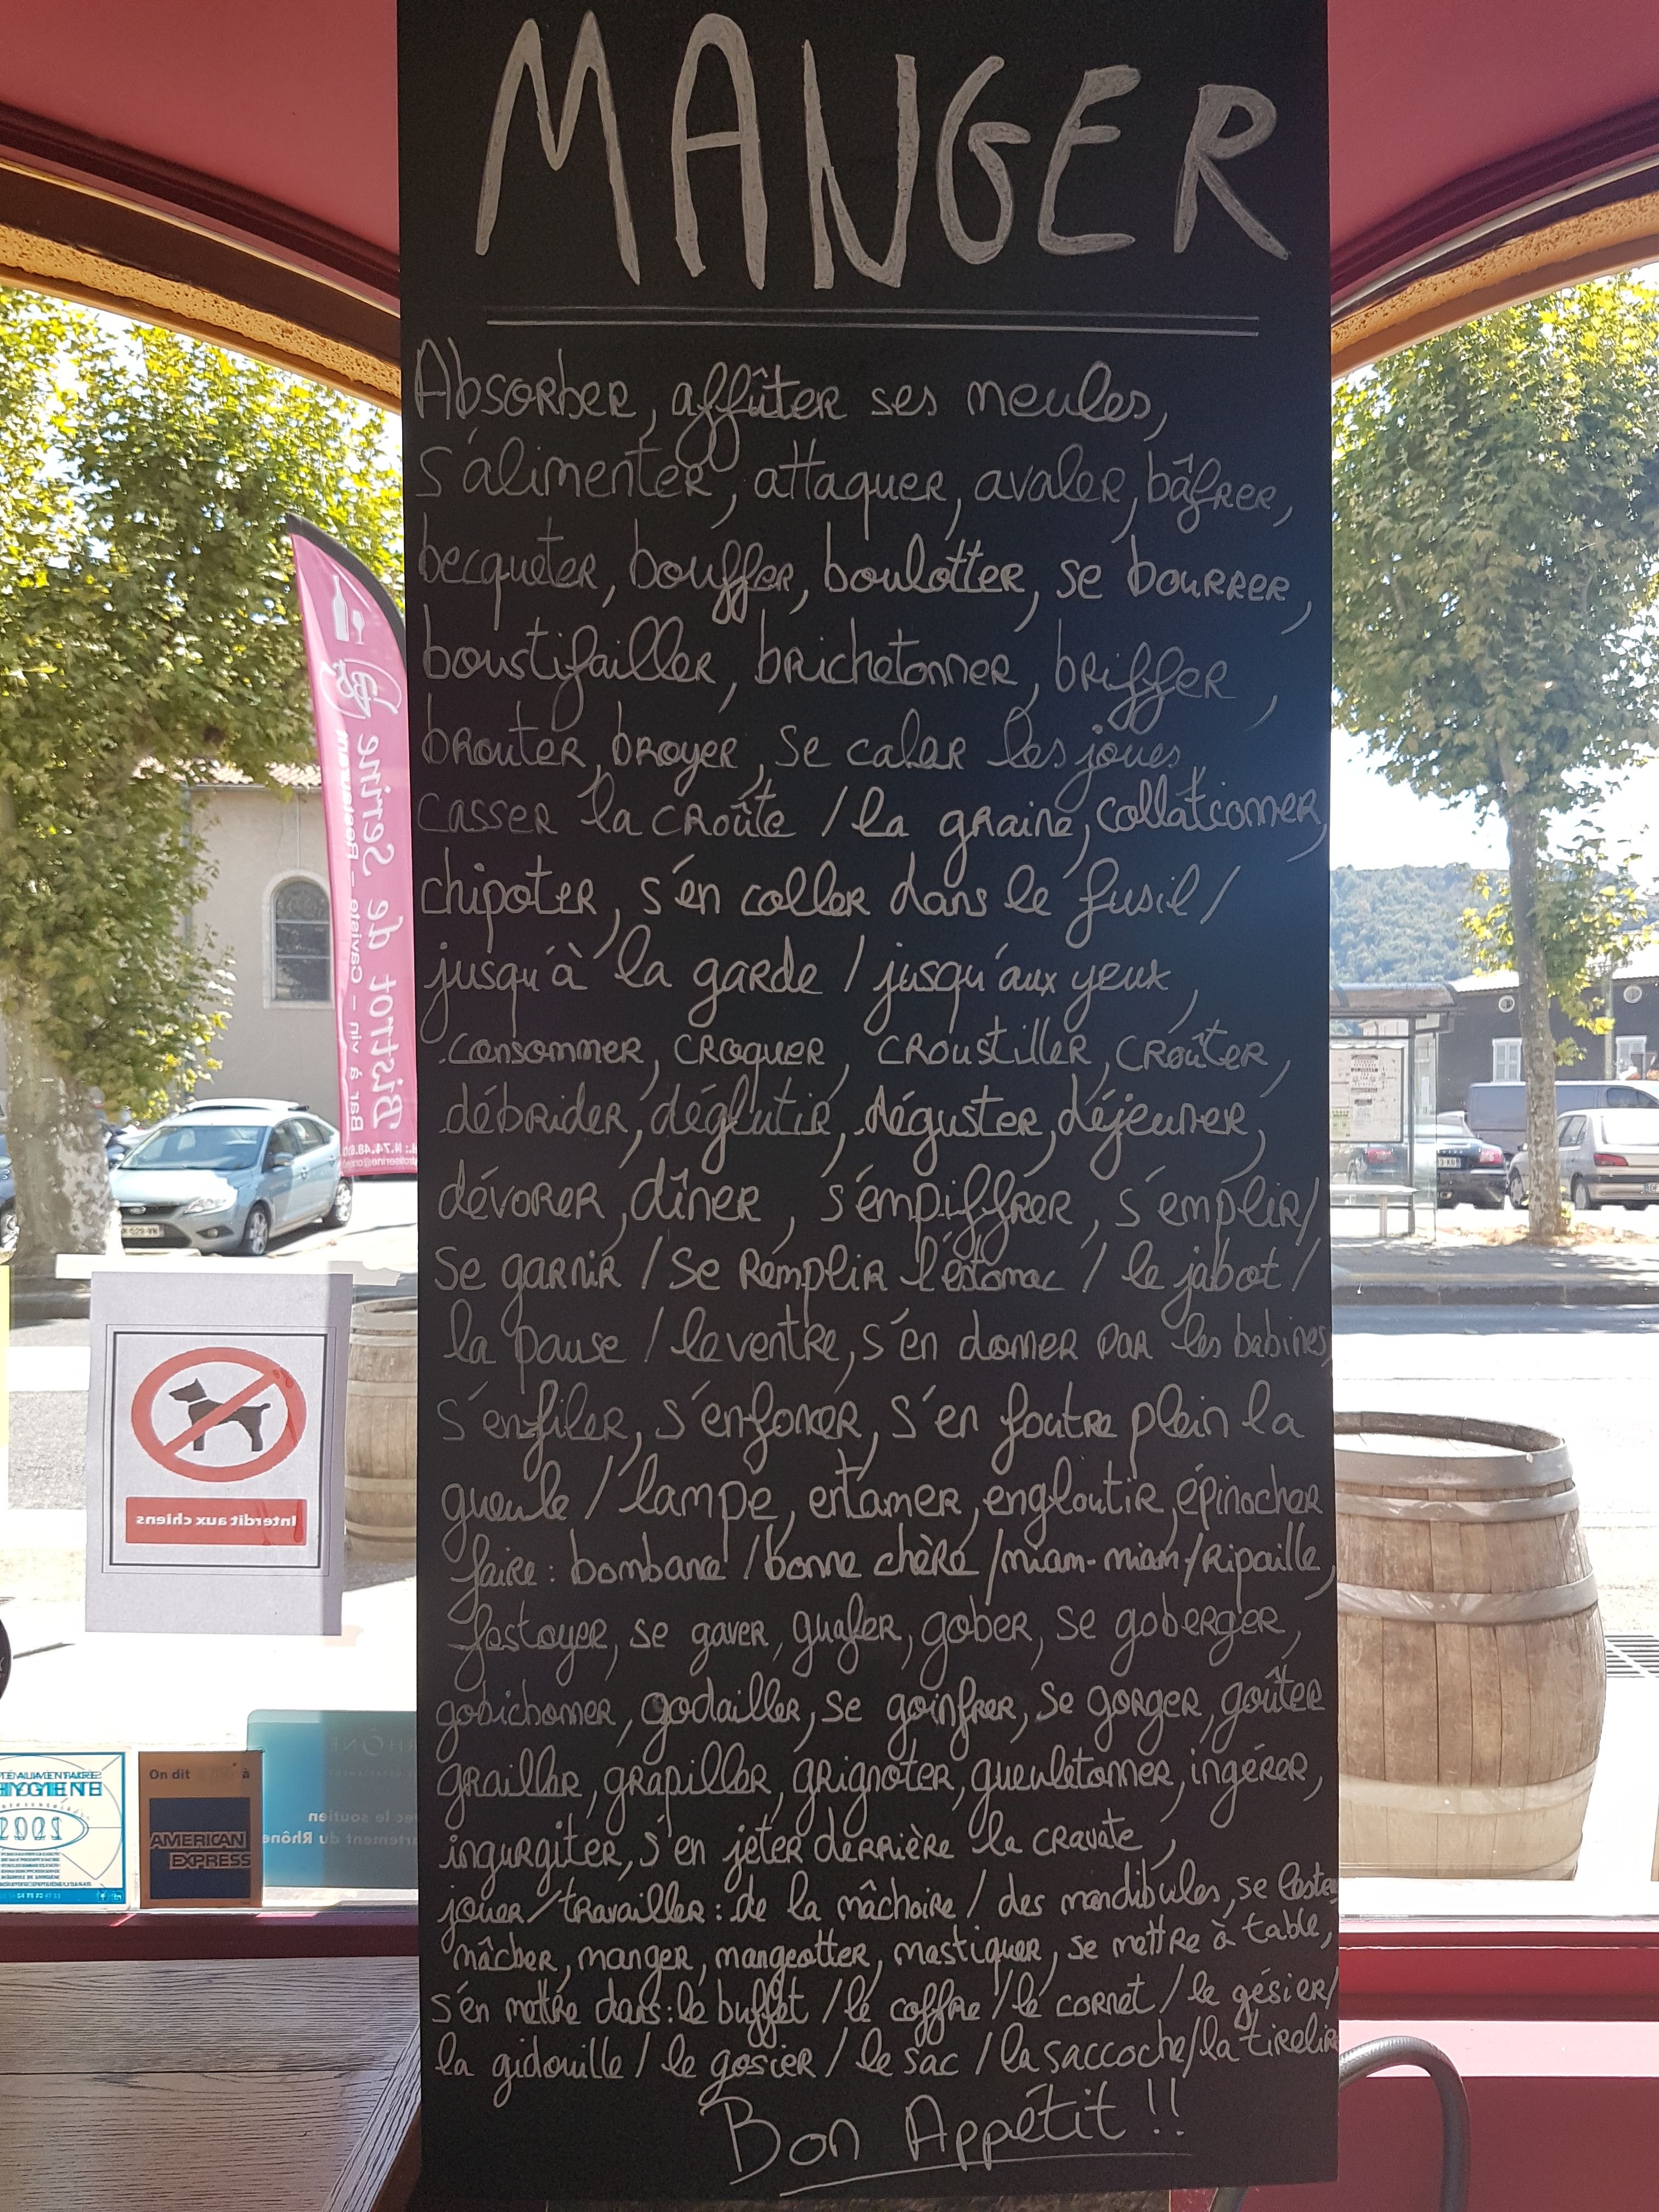 MANGER
Absorber, affûter ses meules,
s'alimenter, attaquer, avaler, bâfrer,
becqueter, bouffer, boulotter, se bourrer,
boustifailler, brichetonner, briffer,
brouter, broyer, se caler les joues,
casser la croûte / la graine, collationner,
chipoter, s'en coller dans le fusil /
jusqu'à la garde / jusqu'aux yeux,
consommer, croquer, croustiller, croûter,
débrider, déglutir, déguster, déjeuner,
dévorer, dîner, s'empiffrer, s'emplir /
se garnir / se remplir l'estomac / le jabot /
la panse / le ventre, s'en donner par les babines,
s'enfiler, s'enfoncer, s'en foutre plein la
gueule / lampe, entamer, engloutir, épinocher
faire : bombance / bonne chère / miam-miam / ripaille,
festoyer, se gaver, gnafer, gober, se goberger,
gobichonner, godailler, se goinfrer, se gorger, goûter
grailler, grapiller, grignoter, gueuletonner, ingérer,
ingurgiter, s'en jeter derrière la cravate,
jouer / travailler : de la mâchoire / des mandibules, se lester
mâcher, manger, mangeotter, mastiquer, se mettre à table,
s'en mettre dans : le buffet / le coffre / le cornet / le gésier /
la gidouille / le gosier / le sac / la saccoche / la tirelire
Bon Appétit !!
Bistrot de Serine
Bar à vin - Caviste - Restaurant
Interdit aux chiens
HYGIENE
2021
On dit à
AMERICAN
EXPRESS
RHÔNE
avec le soutien
Département du Rhône